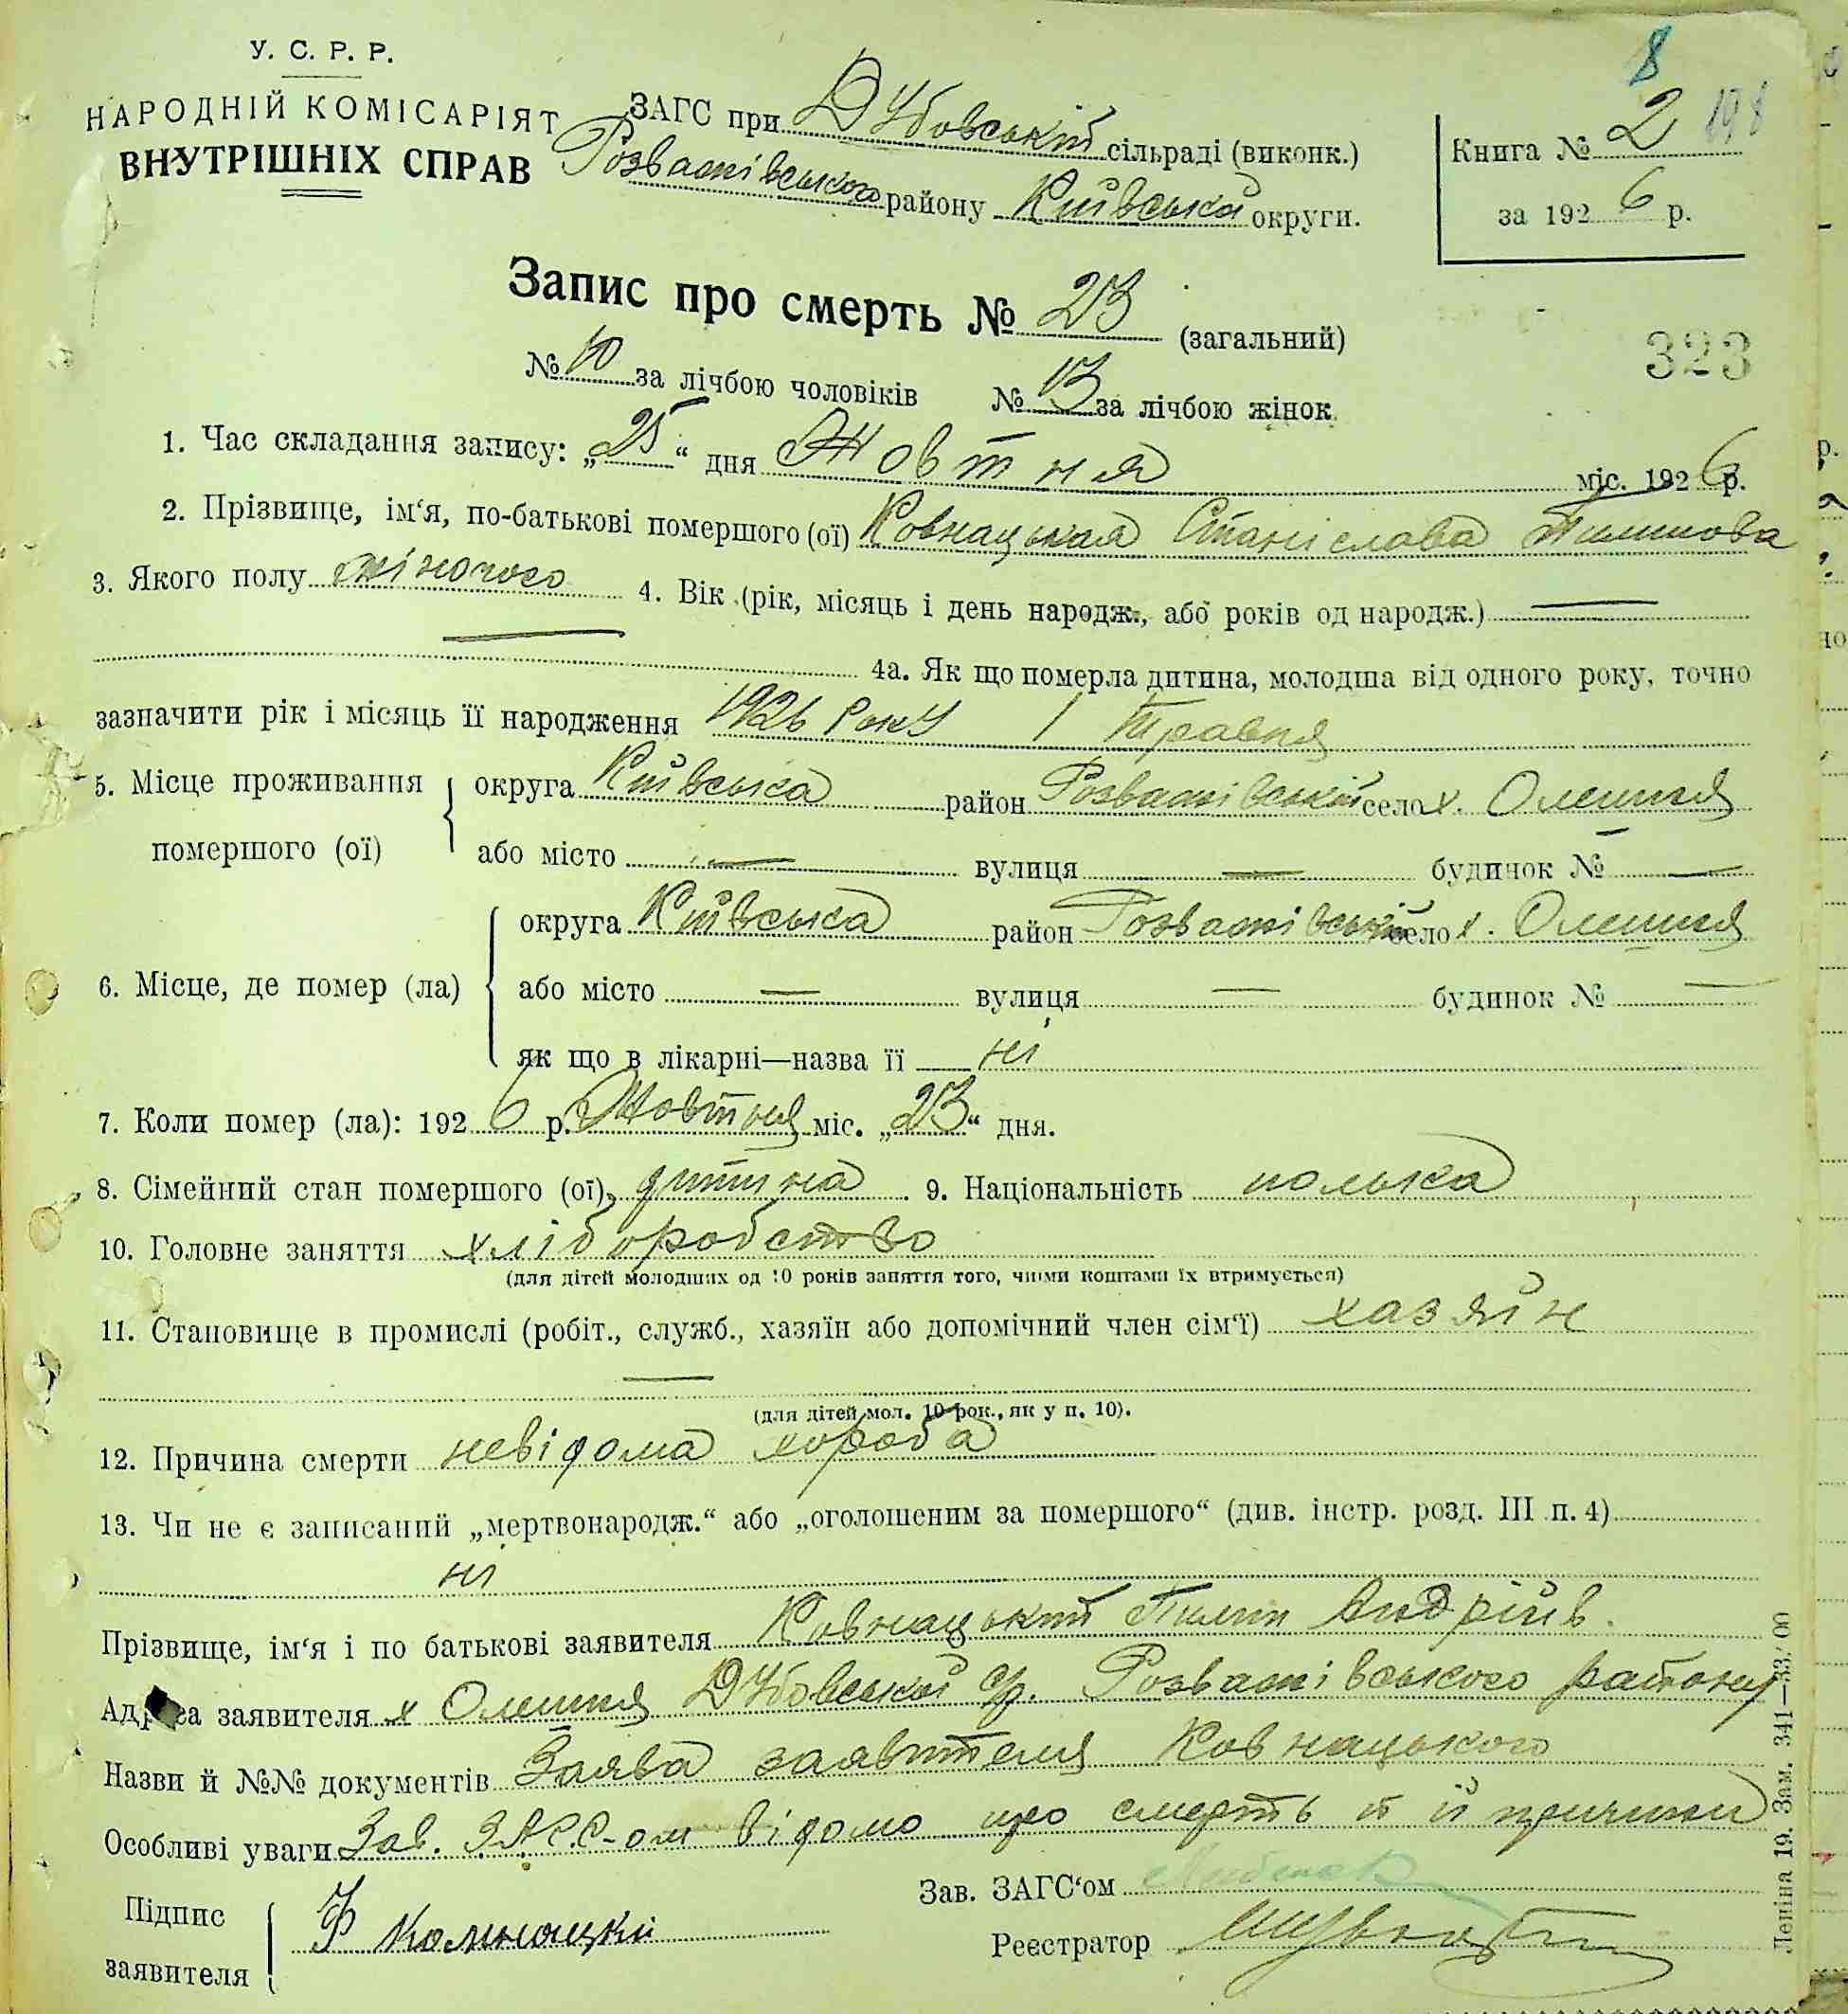 8
У. С. Р. Р.
НАРОДНІЙ КОМІСАРІЯТ
ВНУТРІШНІХ СПРАВ
ЗАГС при Дубовській сільраді (виконк.)
Розважівського району Київської округи.
Книга № 2 198
за 1926 р.
Запис про смерть № 23 (загальний)
323
№ 10 за лічбою чоловіків № 13 за лічбою жінок
1. Час складання запису: „25“ дня Жовтня міс. 1926 р.
2. Прізвище, ім‘я, по-батькові помершого (ої) Ковнацькая Станіслава Пилипова
3. Якого полу жіночого 4. Вік (рік, місяць і день народж., або років од народж.) —
— 4а. Як що померла дитина, молодша від одного року, точно
зазначити рік і місяць її народження 1926 року 1 травня
5. Місце проживання помершого (ої)
округа Київська район Розважівський село х. Олешня
або місто — вулиця — будинок № —
6. Місце, де помер (ла)
округа Київська район Розважівський село х. Олешня
або місто — вулиця — будинок № —
як що в лікарні—назва її ні
7. Коли помер (ла): 1926 р. Жовтня міс. „23“ дня.
8. Сімейний стан помершого (ої) дитина. 9. Національність полька
10. Головне заняття хліборобство
(для дітей молодших од 10 років заняття того, чиїми коштами їх втримується)
11. Становище в промислі (робіт., служб., хазяїн або допомічний член сім‘ї) хазяїн
—
(для дітей мол. 10 рок., як у п. 10).
12. Причина смерти невідома хороба
13. Чи не є записаний „мертвонародж.“ або „оголошеним за помершого“ (див. інстр. розд. III п. 4)
ні
Прізвище, ім‘я і по батькові заявителя Ковнацький Пилип Андріїв.
Адреса заявителя х Олешня Дубовської с/р. Розважівського району
Назви й №№ документів Заява заявителя Ковнацького
Особливі уваги Зав. ЗАГС-ом відомо про смерть й її причини
Зав. ЗАГС‘ом
Підпис заявителя Ф
Реєстратор
Леніна 19. Зам. 341—33.' 00